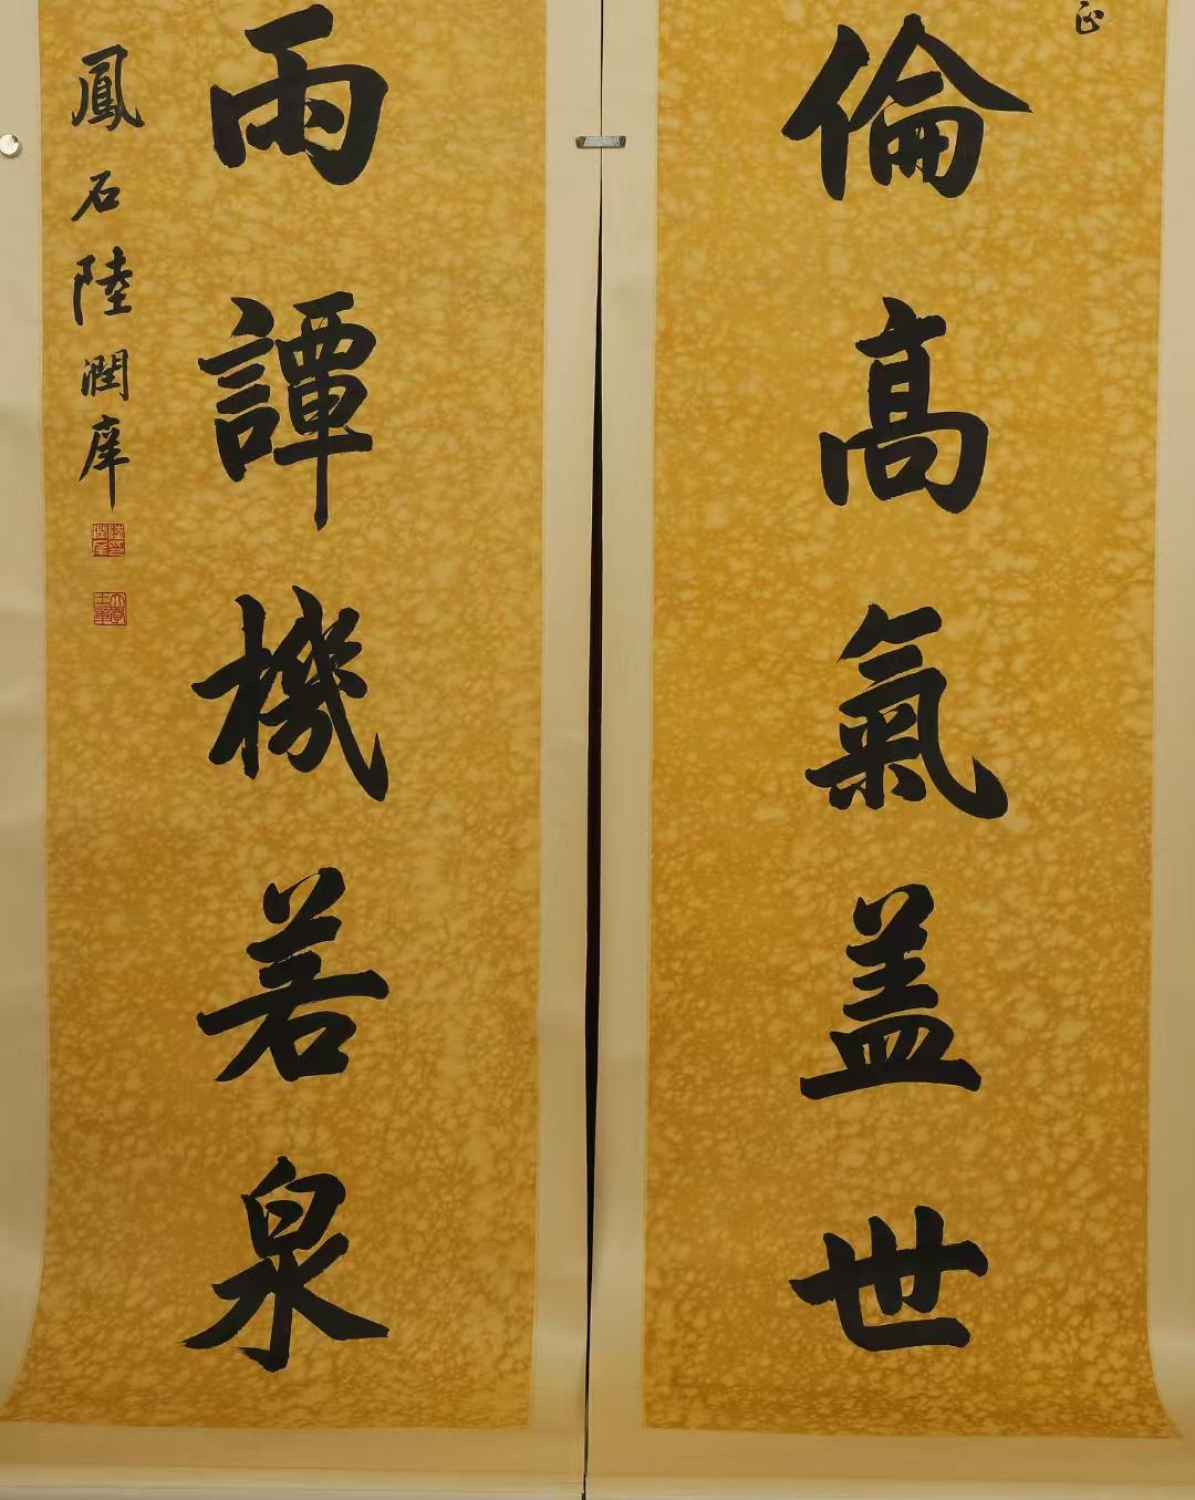 正
倫高氣盖世
雨譚機若泉
鳳石陸潤庠